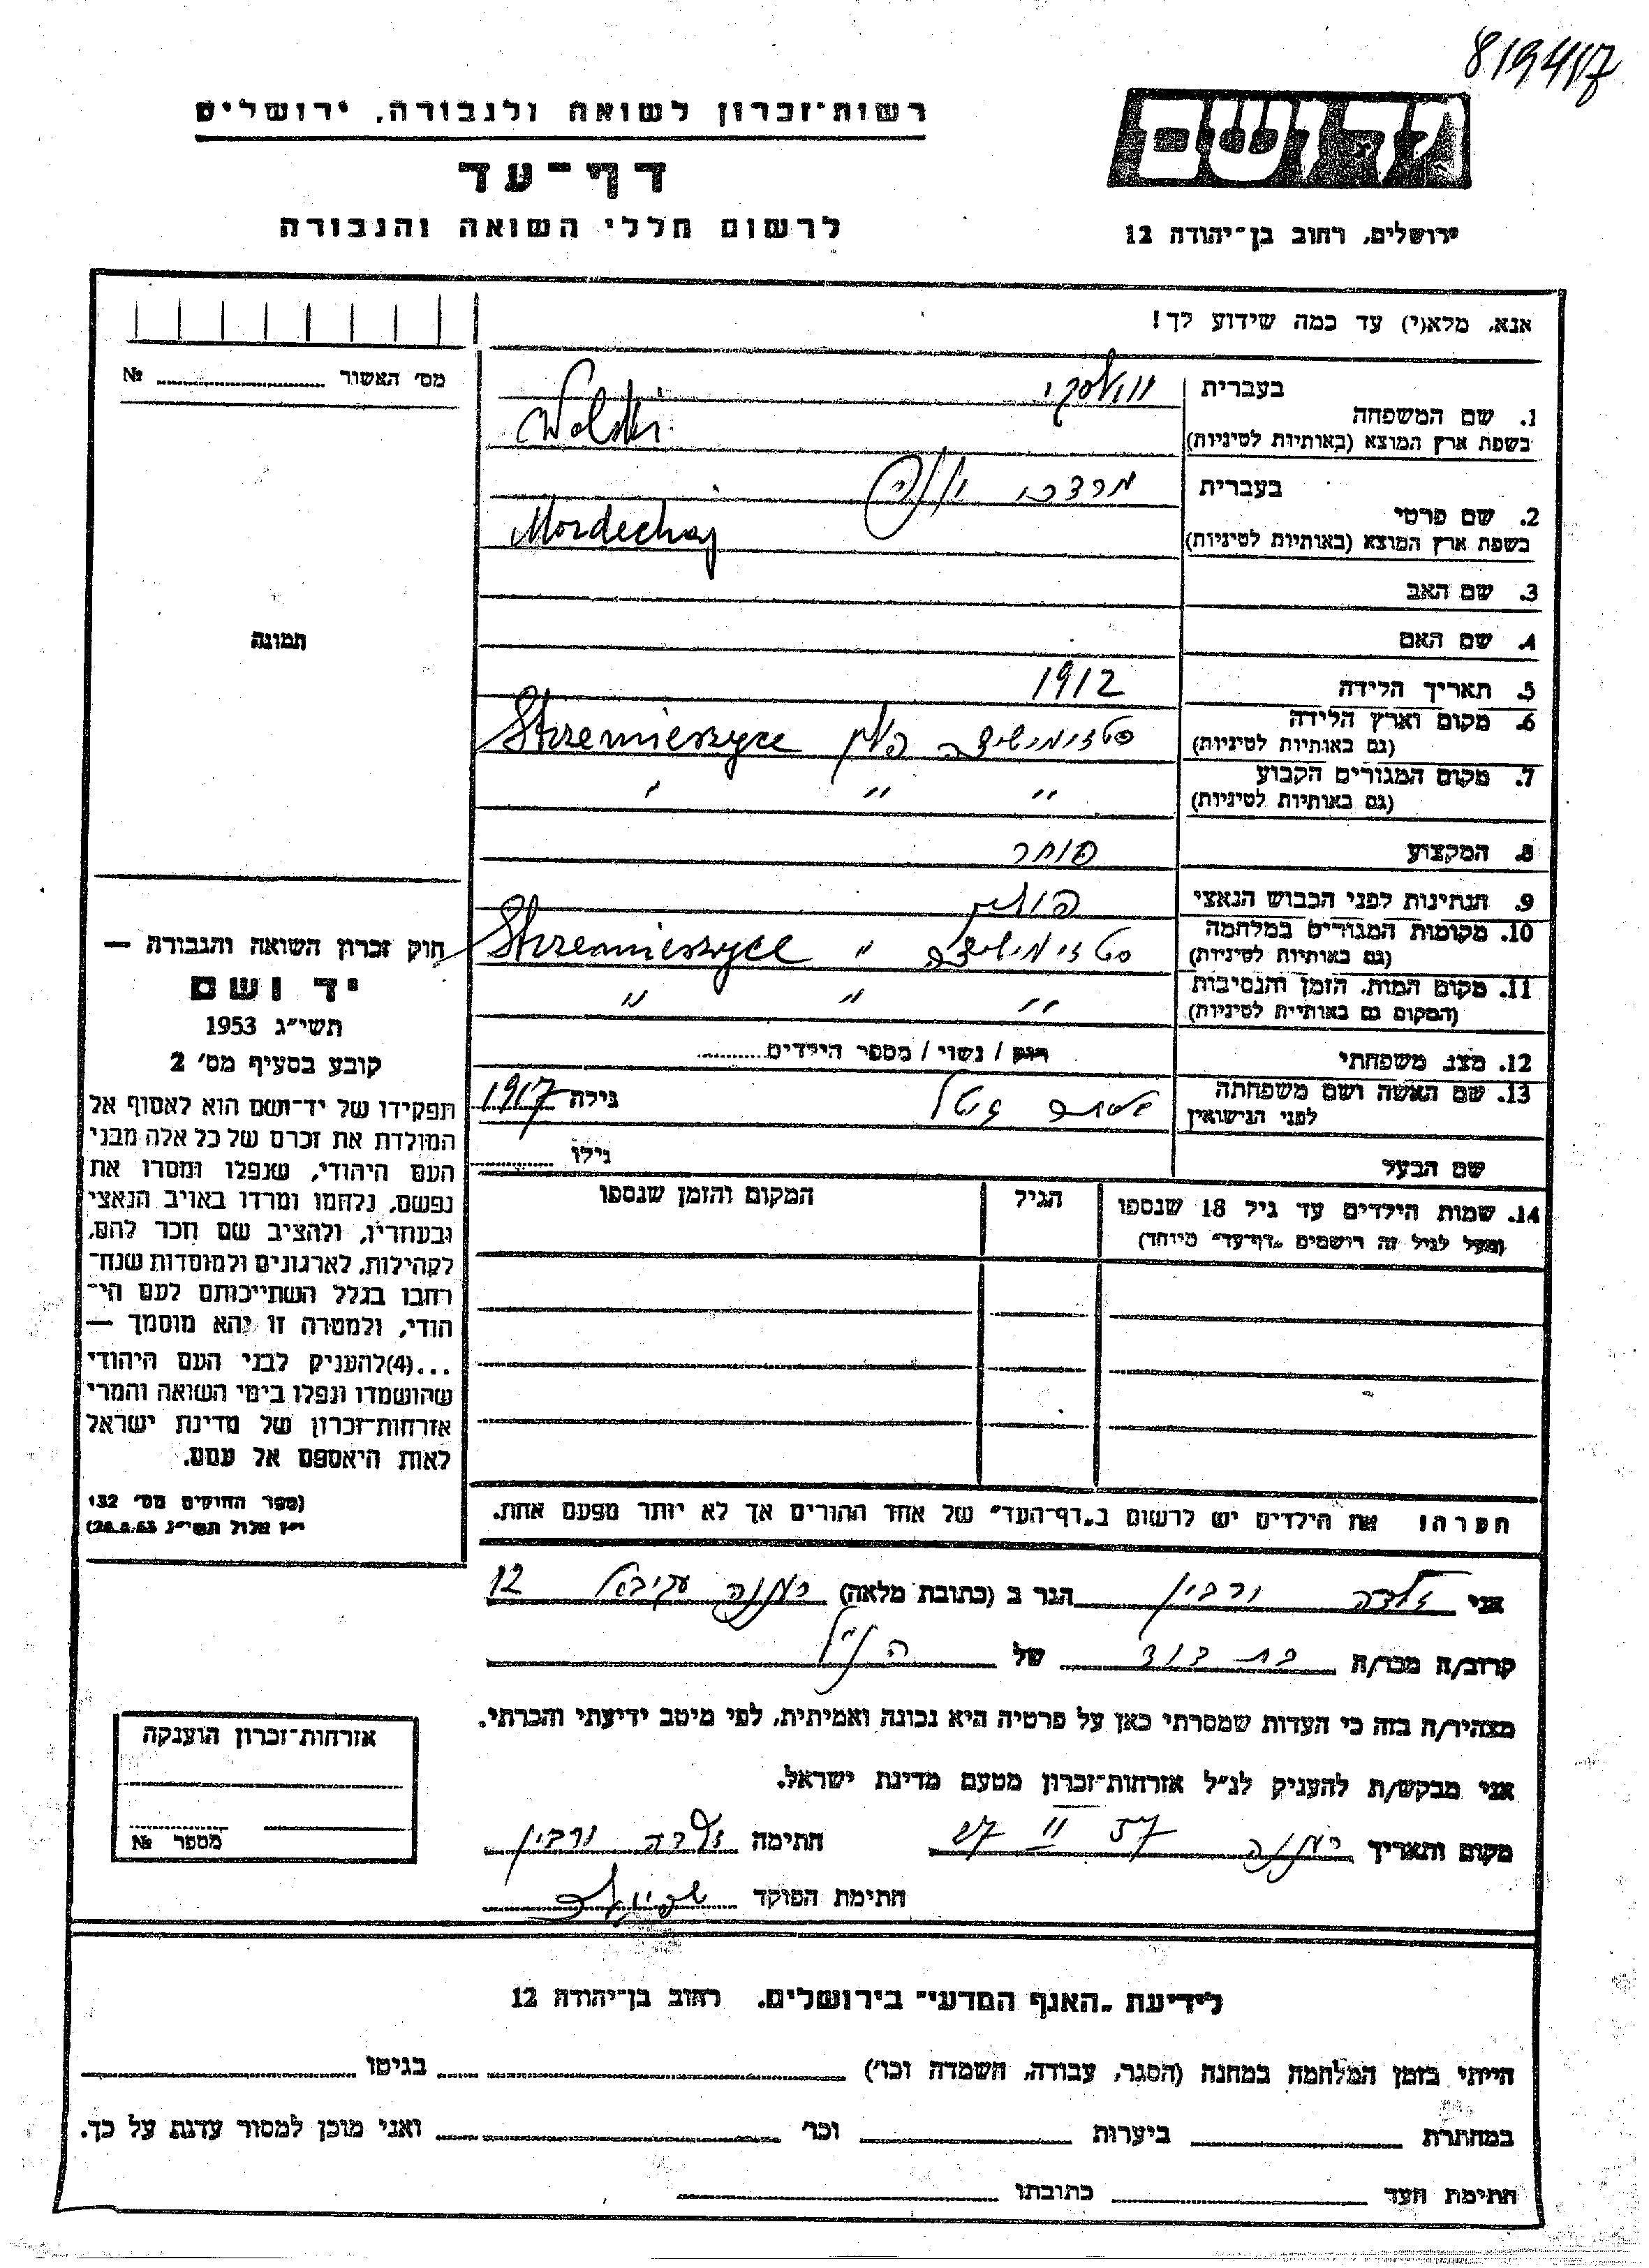 819417
רשות־זכרון לשואה ולגבורה, ירושלים
דף־עד
לרשום חללי השואה והגבורה
יד ושם
ירושלים, רחוב בן־יהודה 12
אנא, מלא(י) עד כמה שידוע לך!
מס' האשור № 
תמונה
1. שם המשפחה בעברית וואלסקי
בשפת ארץ המוצא (באותיות לטיניות) Wolski
2. שם פרטי בעברית מרדכי
בשפת ארץ המוצא (באותיות לטיניות) Mordechaj
3. שם האב
4. שם האם
5. תאריך הלידה 1912
6. מקום וארץ הלידה פולין Strzemieszyce
(גם באותיות לטיניות)
7. מקום המגורים הקבוע " " "
(גם באותיות לטיניות)
8. המקצוע סוחר
9. הנתינות לפני הכבוש הנאצי פולנית
10. מקומות המגורים במלחמה " Strzemieszyce
(גם באותיות לטיניות)
11. מקום המות, הזמן והנסיבות " " "
(המקום גם באותיות לטיניות)
12. מצב משפחתי רווק / נשוי / מספר הילדים
13. שם האשה ושם משפחתה גילה 1917
לפני הנישואין
שם הבעל גילו
14. שמות הילדים עד גיל 18 שנספו הגיל המקום והזמן שנספו
(מעל לגיל זה רושמים "דף־עד" מיוחד)
הערה: את הילדים יש לרשום ב"דף־העד" של אחד ההורים אך לא יותר מפעם אחת.
חוק זכרון השואה והגבורה —
יד ושם
תשי"ג 1953
קובע בסעיף מס' 2
תפקידו של יד־ושם הוא לאסוף אל
המולדת את זכרם של כל אלה מבני
העם היהודי, שנפלו ומסרו את
נפשם, נלחמו ומרדו באויב הנאצי
ובעוזריו, ולהציב שם וזכר להם,
לקהילות, לארגונים ולמוסדות שנח־
רבו בגלל השתייכותם לעם הי־
הודי, ולמטרה זו יהא מוסמך —
...(4) להעניק לבני העם היהודי
שהושמדו ונפלו בימי השואה והמרי
אזרחות־זכרון של מדינת ישראל
לאות היאספם אל עמם.
(ספר החוקים מס' 132,
י"ז אלול תשי"ג 28.8.53)
אני זלדה ורבין הגר ב (כתובת מלאה) 12
קרוב/ה מכר/ה בת דוד של הנ"ל
מצהיר/ה בזה כי העדות שמסרתי כאן על פרטיה היא נכונה ואמיתית, לפי מיטב ידיעתי והכרתי.
אני מבקש/ת להעניק לנ"ל אזרחות־זכרון מטעם מדינת ישראל.
מקום ותאריך 27 II 57 חתימה זלדה ורבין
חתימת הפוקד
אזרחות־זכרון הוענקה
מספר №
לידיעת "האגף המדעי" בירושלים, רחוב בן־יהודה 12
הייתי בזמן המלחמה במחנה (הסגר, עבודה, השמדה וכו') בגיטו
במחתרת ביערות וכו' ואני מוכן למסור עדות על כך.
חתימת העד כתובתו